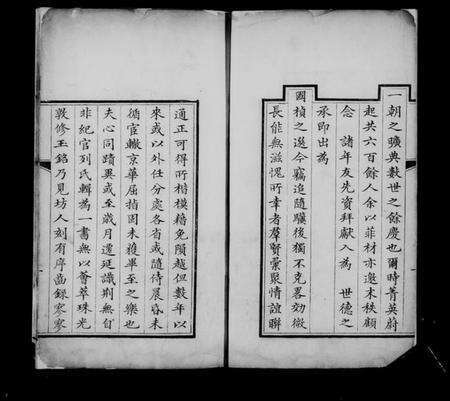 一朝之曠典數世之餘慶也爾時菁英蔚
起共六百餘人余以菲材亦邀末秩顧
念　諸年友先資拜獻入為　世德之
承即出為
國楨之選今竊追隨驥後獨不克畧効微
長能無滋愧所幸者羣賢彙聚情誼聯
通正可得所楷模藉免隕越但數年以
來或以外任分處各省或隨侍晨昏未
循官轍京華屈指固未獲畢至之樂也
夫心同蹟異或至歲月遷延識荊無自
非紀官列氏輯為一書無以薈萃珠光
敦修玉銘乃見坊人刻有序齒錄寥寥